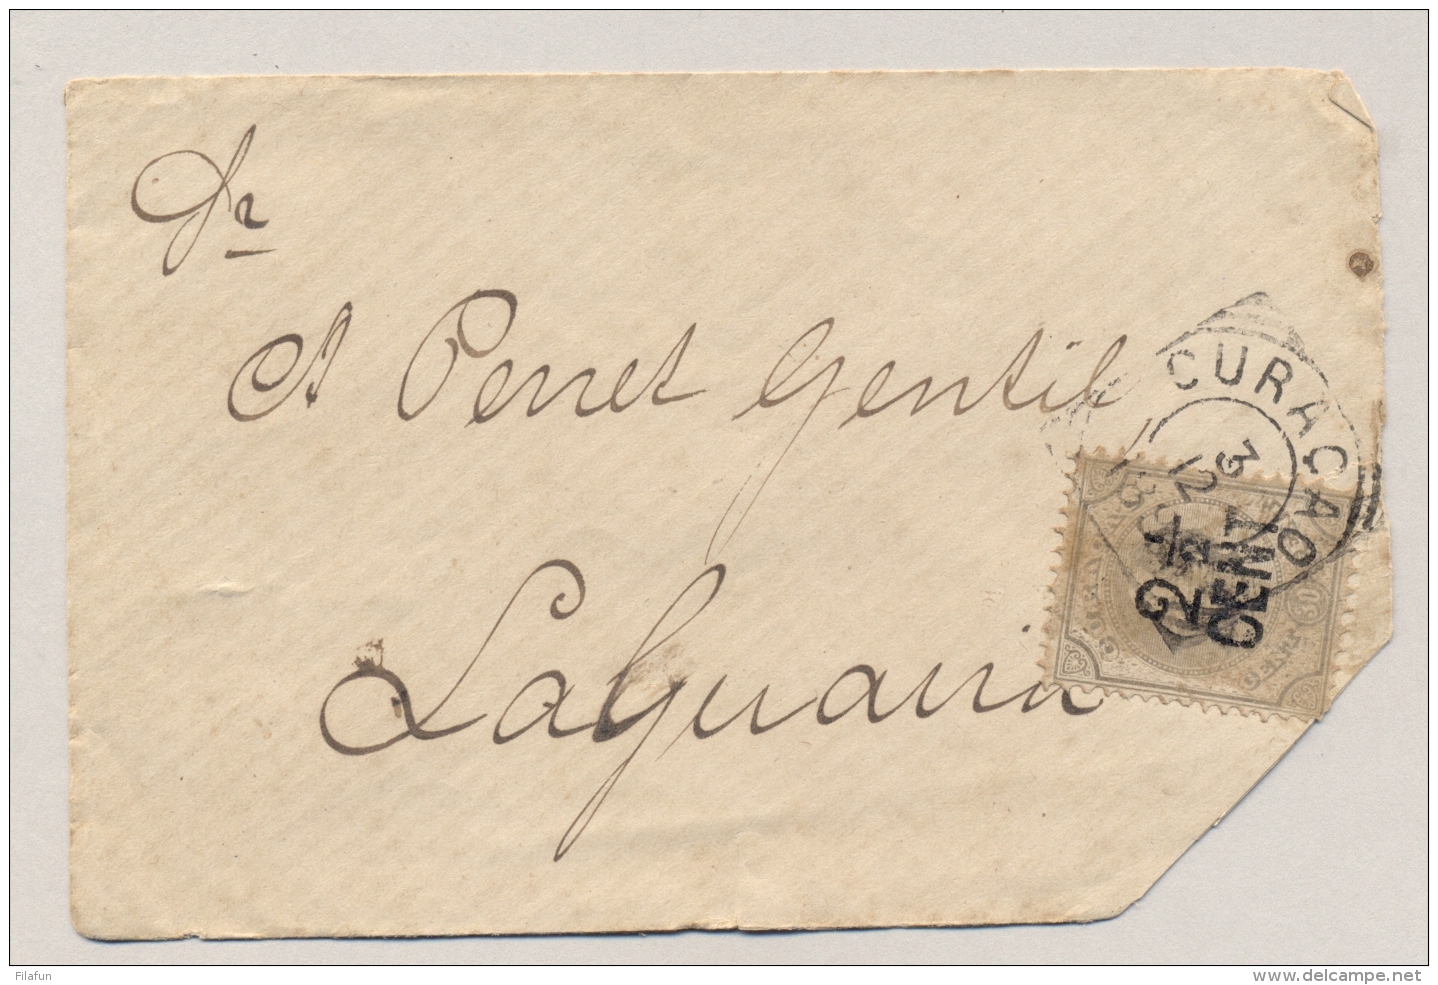 Sr
A Perret Gentil
LaGuaira
CURAÇAO
3
12
18
2 1/2
CENT
CURAÇAO
50
CENT
Filafun
www.delcampe.net